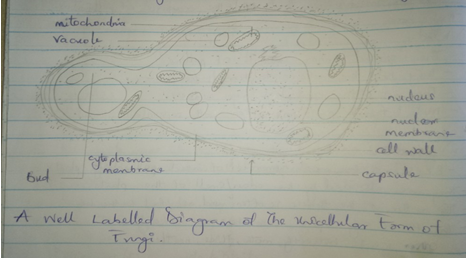 mitochondria
vacuole
nucleus
nuclear
membrane
cell wall
cytoplasmic
membrane
Bud
capsule
A well Labelled Diagram of The Unicellular Form of
Fungi.